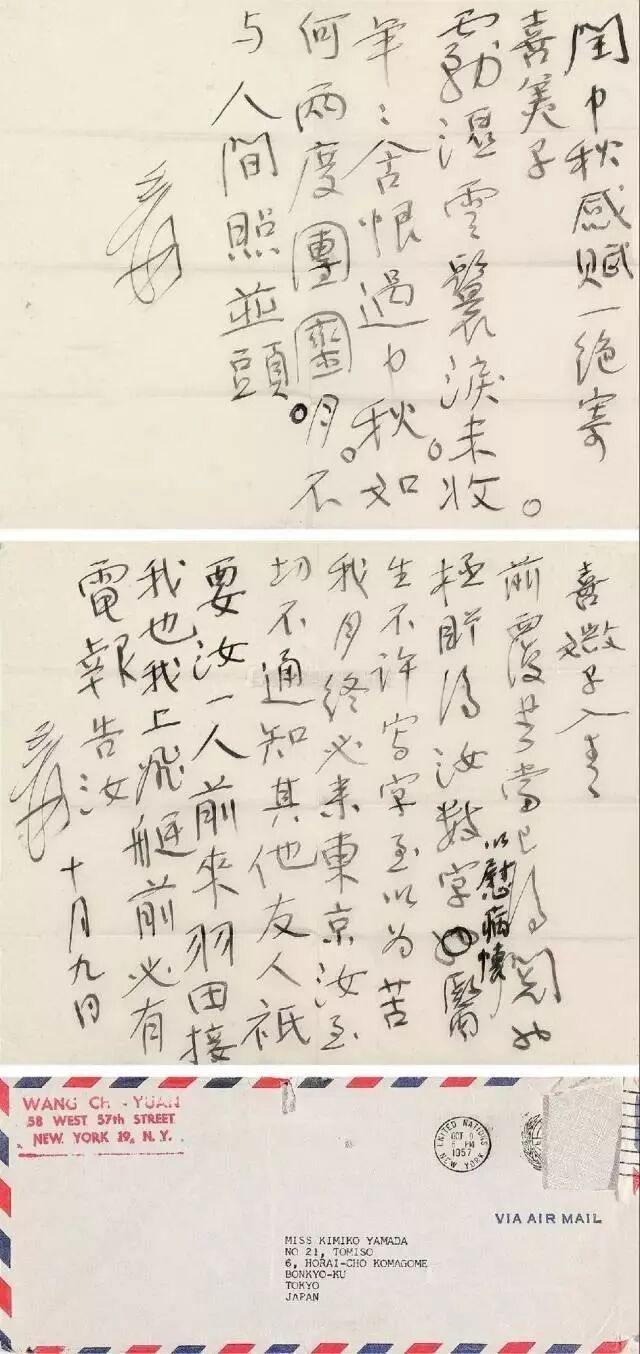 閏中秋感赋一绝寄
喜美子
霧湿雲鬟淚未收。
年〻含恨過中秋。如
何兩度團圞月。不
与人間照並頭
爰
喜媺子入青
前覆当已得閲
極盼得汝数字以慰病懷醫
生不許写字至以为苦
我月终必来東京汝至
切不通知其他友人祗
要汝一人前來羽田接
我也我上飛艇前必有
電報告汝
十月九日
爰
WANG CH -YUAN
58 WEST 57th STREET
NEW YORK 19, N. Y.
UNITED NATIONS
OCT 9
PM
1957
NEW YORK
VIA AIR MAIL
MISS KIMIKO YAMADA
NO 21, TOMISO
6, HORAI-CHO KOMAGOME
BONKYO-KU
TOKYO
JAPAN